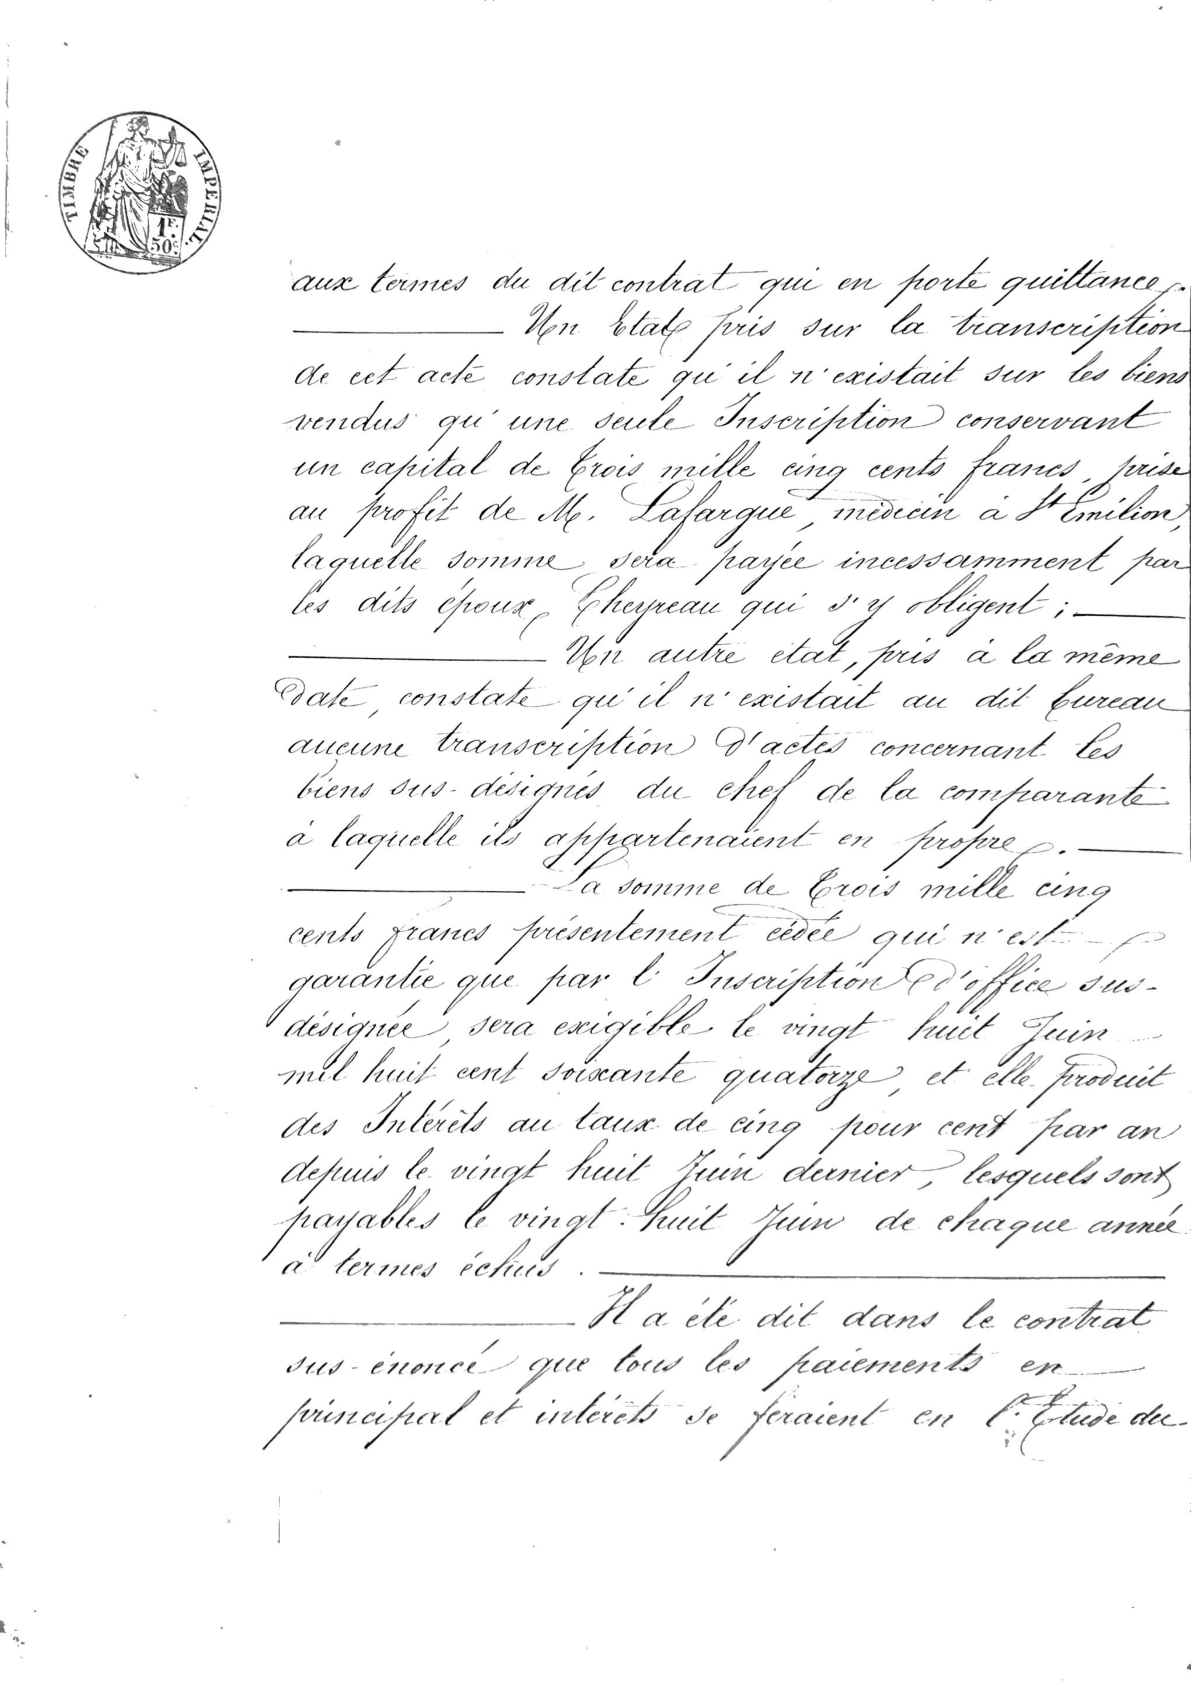 TIMBRE IMPERIAL.
1F.
50c.
aux termes du dit contrat qui en porte quittance.
Un Etat pris sur la transcription
de cet acte constate qu'il n'existait sur les biens
vendus qu'une seule Inscription conservant
un capital de Trois mille cinq cents francs, prise
au profit de M. Lafargue, médecin à St Emilion,
laquelle somme sera payée incessamment par
les dits époux Cheyreau qui s'y obligent ;
Un autre état, pris à la même
Date, constate qu'il n'existait au dit bureau
aucune transcription d'actes concernant les
biens sus-désignés du chef de la comparante
à laquelle ils appartenaient en propre.
La somme de Trois mille cinq
cents francs présentement cédée qui n'est
garantie que par l'Inscription d'office sus-
désignée, sera exigible le vingt huit Juin
mil huit cent soixante quatorze, et elle produit
des Intérêts au taux de cinq pour cent par an
depuis le vingt huit Juin dernier, lesquels sont
payables le vingt-huit Juin de chaque année
à termes échus.
Il a été dit dans le contrat
sus-énoncé que tous les paiements en
principal et intérêts se feraient en l'Etude du